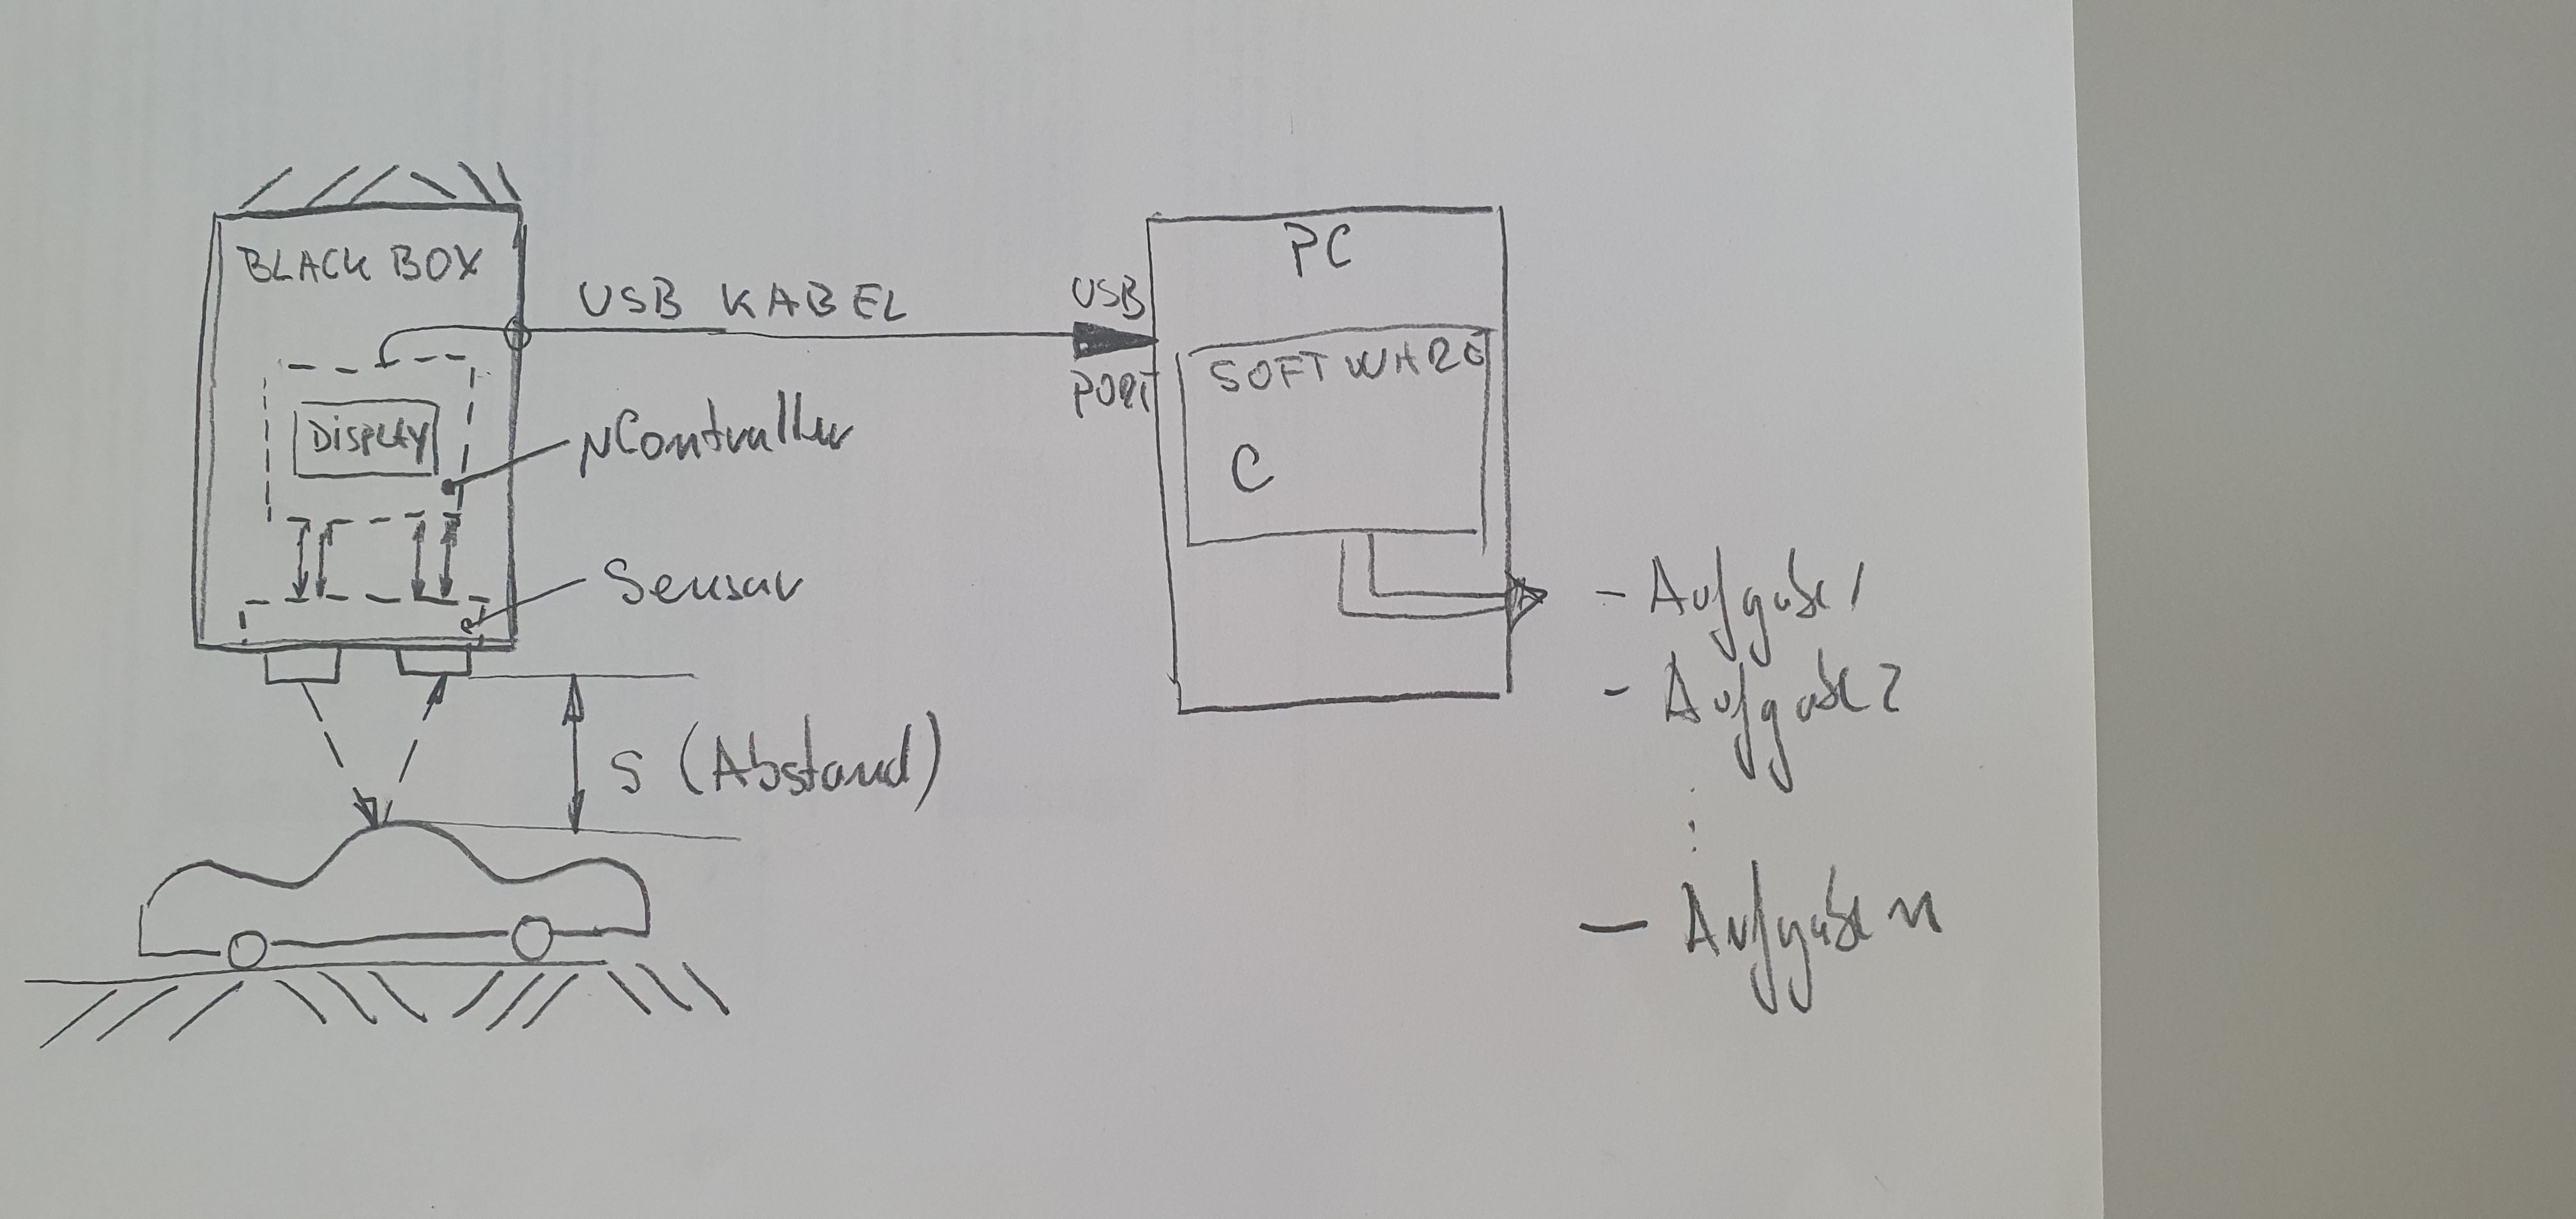 BLACK BOX
DISPLAY
USB KABEL
µController
Sensor
S (Abstand)
USB
PORT
PC
SOFTWARE
C
- Aufgabe 1
- Aufgabe 2
⋮
- Aufgabe n